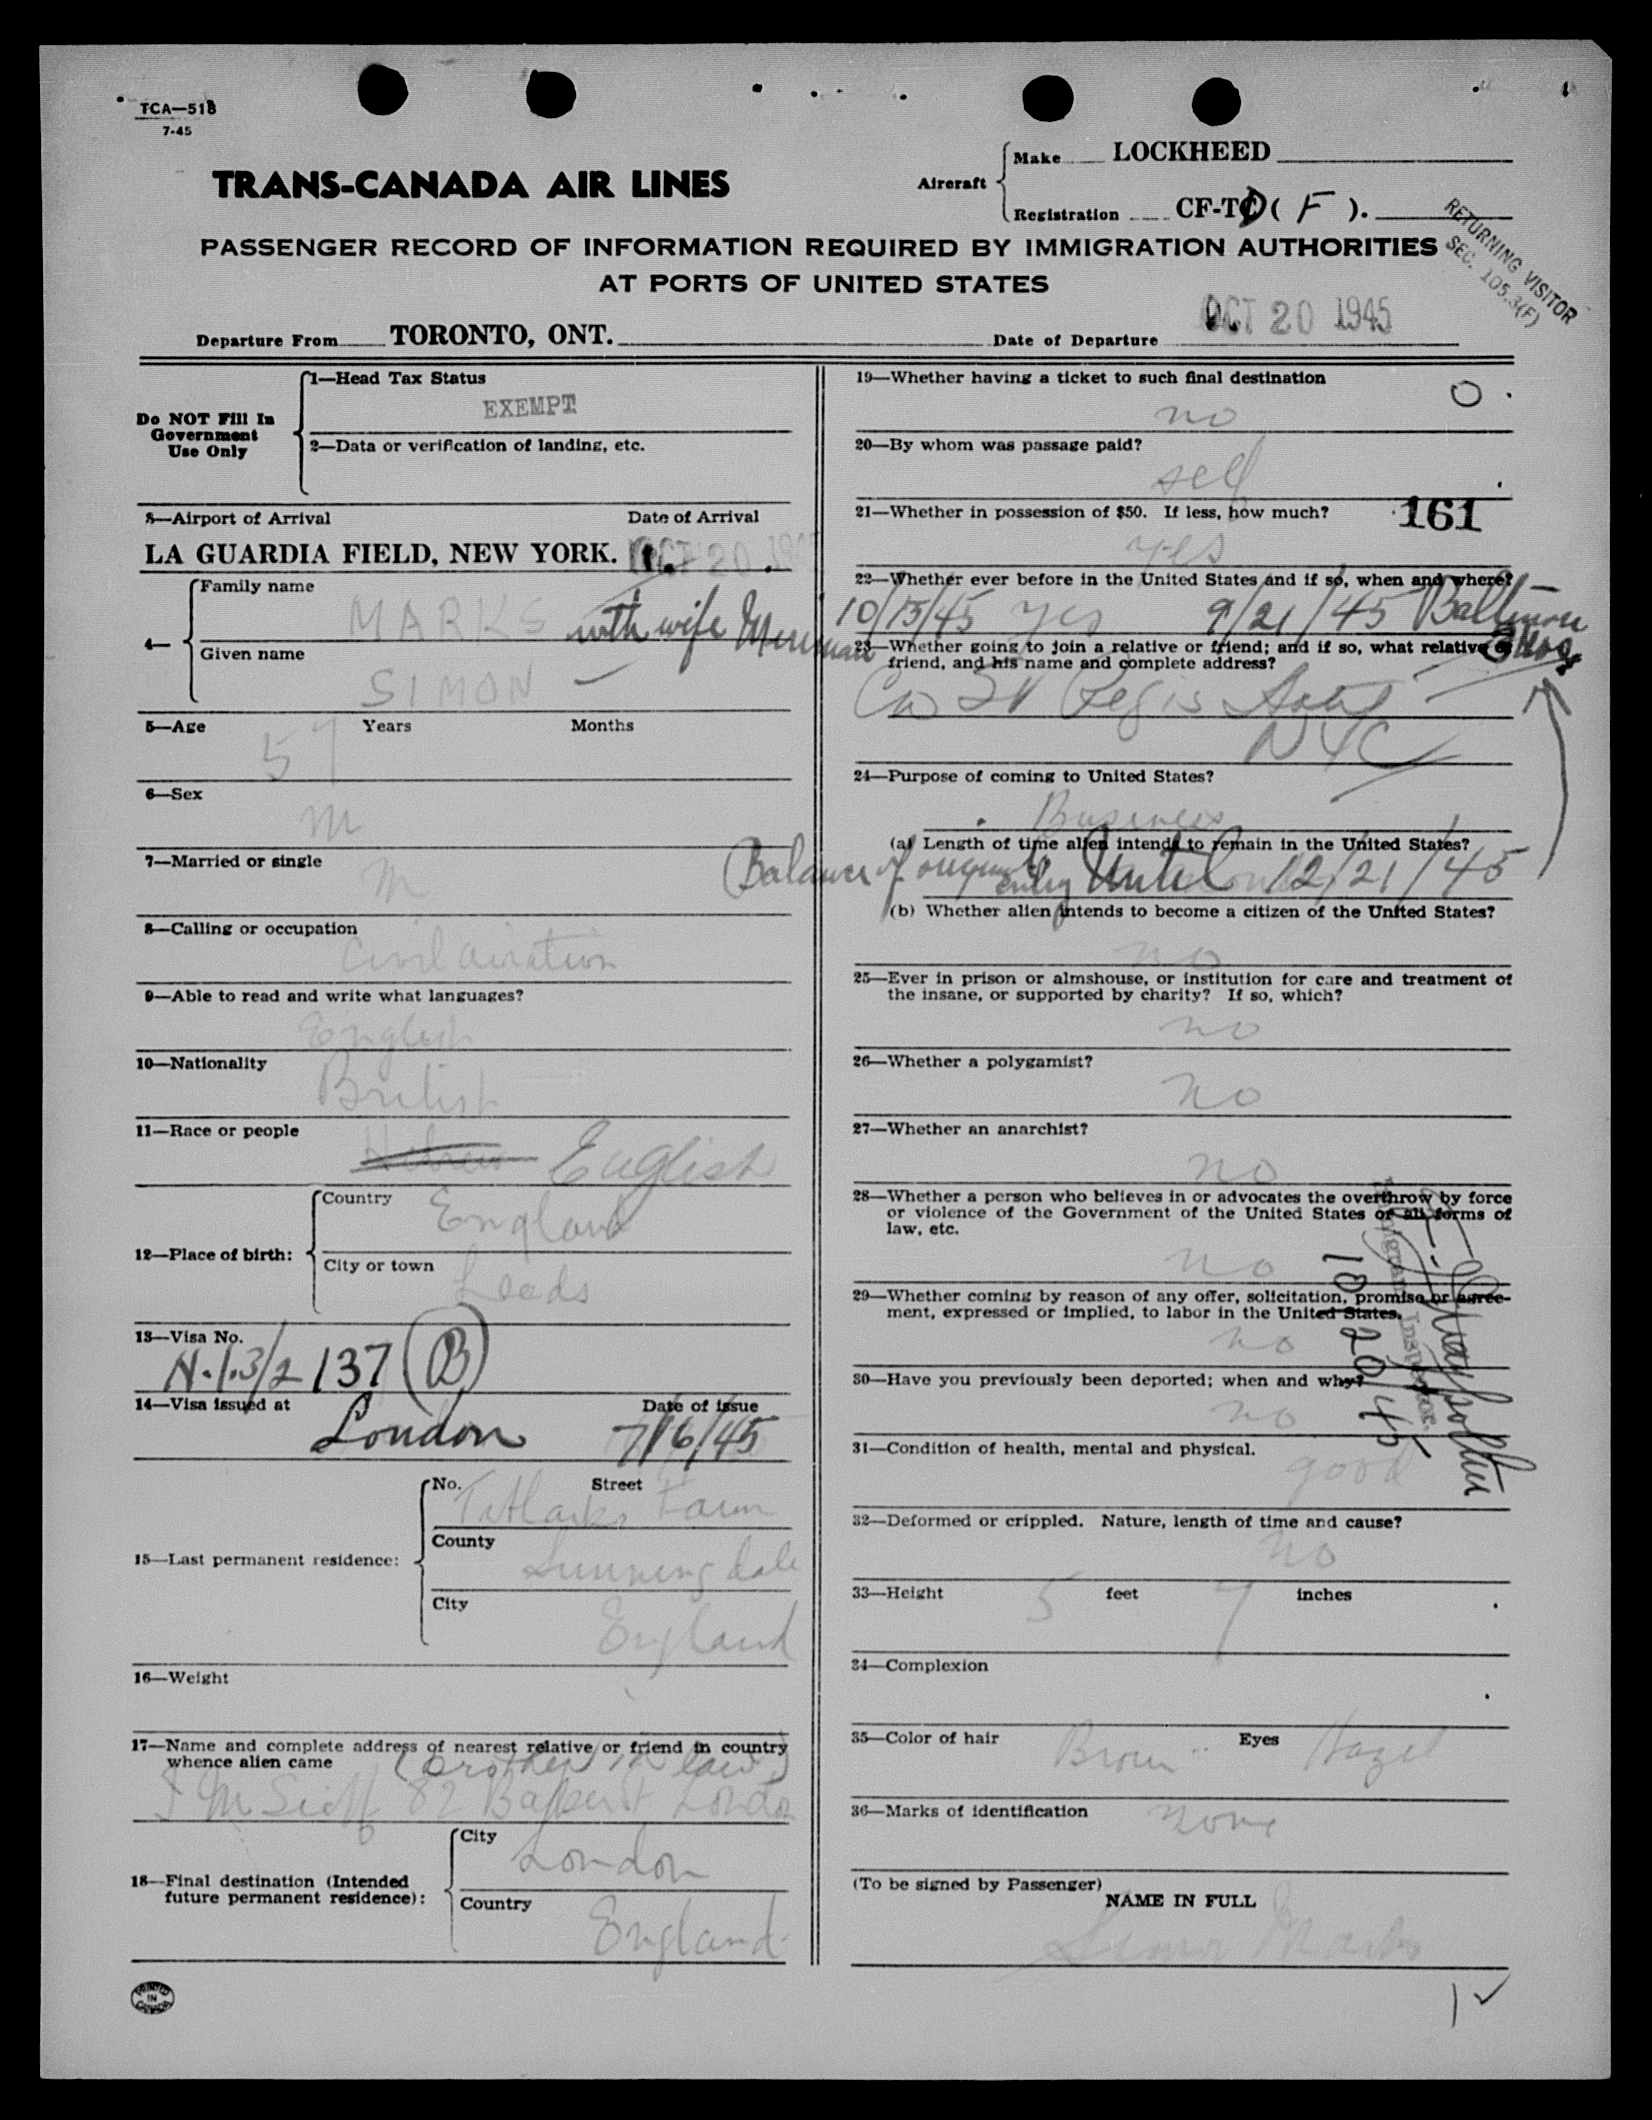 TCA—518
7-45
TRANS-CANADA AIR LINES
Aircraft
Make LOCKHEED
Registration CF-T ( F ).
RETURNING VISITOR
SEC. 105.3(F)
PASSENGER RECORD OF INFORMATION REQUIRED BY IMMIGRATION AUTHORITIES
AT PORTS OF UNITED STATES
Departure From TORONTO, ONT.
Date of Departure OCT 20 1945
Do NOT Fill In
Government
Use Only
1—Head Tax Status
EXEMPT
2—Data or verification of landing, etc.
3—Airport of Arrival Date of Arrival
LA GUARDIA FIELD, NEW YORK. OCT 20
4—
Family name
MARKS with wife
Given name
SIMON
5—Age 57 Years Months
6—Sex
M
7—Married or single
M
8—Calling or occupation
Civil aviation
9—Able to read and write what languages?
English
10—Nationality
British
11—Race or people
Hebrew English
12—Place of birth:
Country
England
City or town
Leeds
13—Visa No.
137 (B)
14—Visa issued at Date of issue
London 7/16/45
15—Last permanent residence:
No. Street
Farm
County
Sunningdale
City
England
16—Weight
17—Name and complete address of nearest relative or friend in country
whence alien came (brother in law)
82 Baker St London
18—Final destination (Intended
future permanent residence):
City
London
Country
England
PRINTED
IN
CANADA
19—Whether having a ticket to such final destination
no
20—By whom was passage paid?
self
21—Whether in possession of $50. If less, how much?
161
yes
22—Whether ever before in the United States and if so, when and where?
10/15/45 yes 9/21/45 Baltimore
3 mos
23—Whether going to join a relative or friend; and if so, what relative or
friend, and his name and complete address?
St Regis Hotel
NYC
24—Purpose of coming to United States?
Business
(a) Length of time alien intends to remain in the United States?
Balance of original entry Until 12/21/45
(b) Whether alien intends to become a citizen of the United States?
no
25—Ever in prison or almshouse, or institution for care and treatment of
the insane, or supported by charity? If so, which?
no
26—Whether a polygamist?
no
27—Whether an anarchist?
no
28—Whether a person who believes in or advocates the overthrow by force
or violence of the Government of the United States or all forms of
law, etc.
no
29—Whether coming by reason of any offer, solicitation, promise or agree-
ment, expressed or implied, to labor in the United States.
no
30—Have you previously been deported; when and why?
no
Immigrant Inspector.
10 20/45
31—Condition of health, mental and physical.
good
32—Deformed or crippled. Nature, length of time and cause?
no
33—Height 5 feet 9 inches
34—Complexion
35—Color of hair Brown Eyes Hazel
36—Marks of identification none
(To be signed by Passenger)
NAME IN FULL
Simon Marks